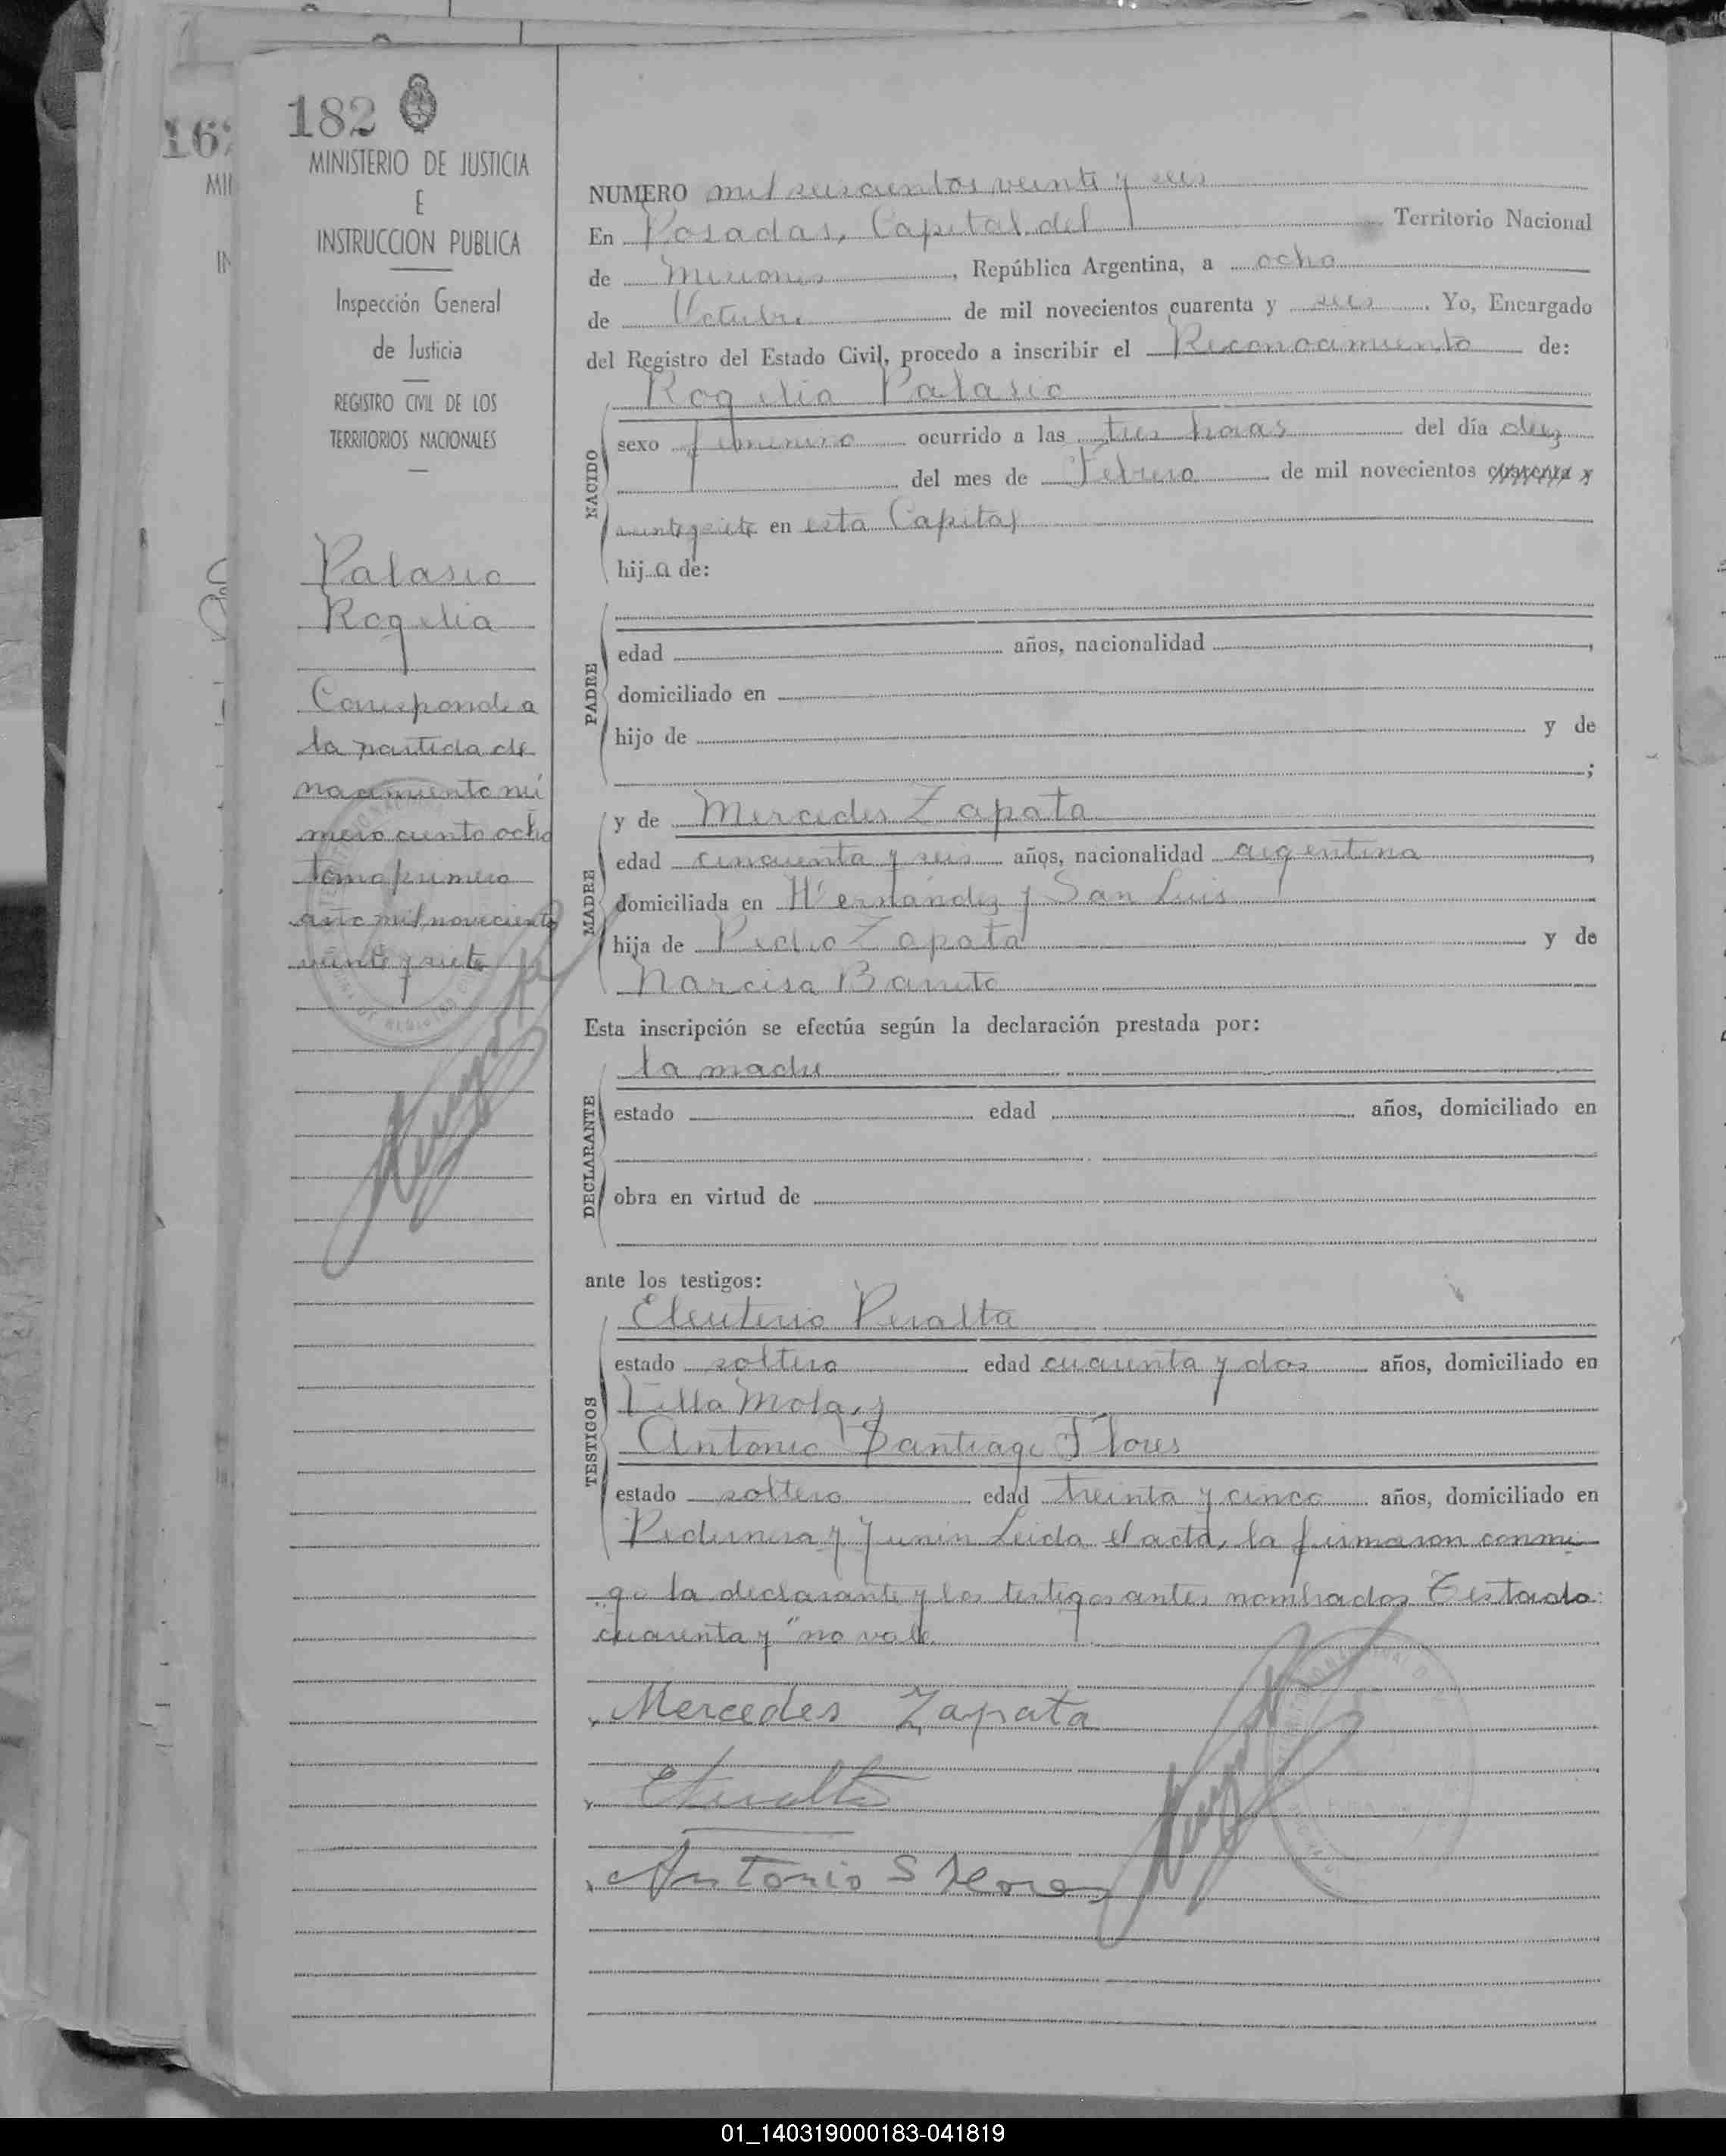 182
MINISTERIO DE JUSTICIA
E
INSTRUCCION PUBLICA
Inspección General
de Justicia
REGISTRO CIVIL DE LOS
TERRITORIOS NACIONALES
Palasio
Rogelia
Corresponde a
la partida de
nacimiento nú
mero ciento ocho
tomo primero
año mil novecientos
veinte y siete
NUMERO mil seiscientos veinte y seis
En Posadas, Capital del Territorio Nacional
de Misiones, República Argentina, a ocho
de Octubre de mil novecientos cuarenta y seis. Yo, Encargado
del Registro del Estado Civil, procedo a inscribir el Reconocimiento de:
Rogelia Palasio
NACIDO
sexo femenino ocurrido a las tres horas del día diez
del mes de Febrero de mil novecientos cuarenta y
veinte y siete en esta Capital
hija de:
PADRE
edad años, nacionalidad ,
domiciliado en
hijo de y de
;
MADRE
y de Mercedes Zapata
edad cincuenta y seis años, nacionalidad argentina,
domiciliada en Hernández y San Luis
hija de Pedro Zapata y de
Narcisa
Esta inscripción se efectúa según la declaración prestada por:
DECLARANTE
la madre
estado edad años, domiciliado en
obra en virtud de
ante los testigos:
TESTIGOS
Eleuterio Peralta
estado soltero edad cuarenta y dos años, domiciliado en
Villa Mola, y
Antonio Santiago Flores
estado soltero edad treinta y cinco años, domiciliado en
Pedernera y Junin Leida el acta, la firmaron conmi
go la declarante y los testigos antes nombrados Testado:
"cuarenta y" no vale.
Mercedes Zapata
EPeralta
Antonio S Flores
01_140319000183-041819